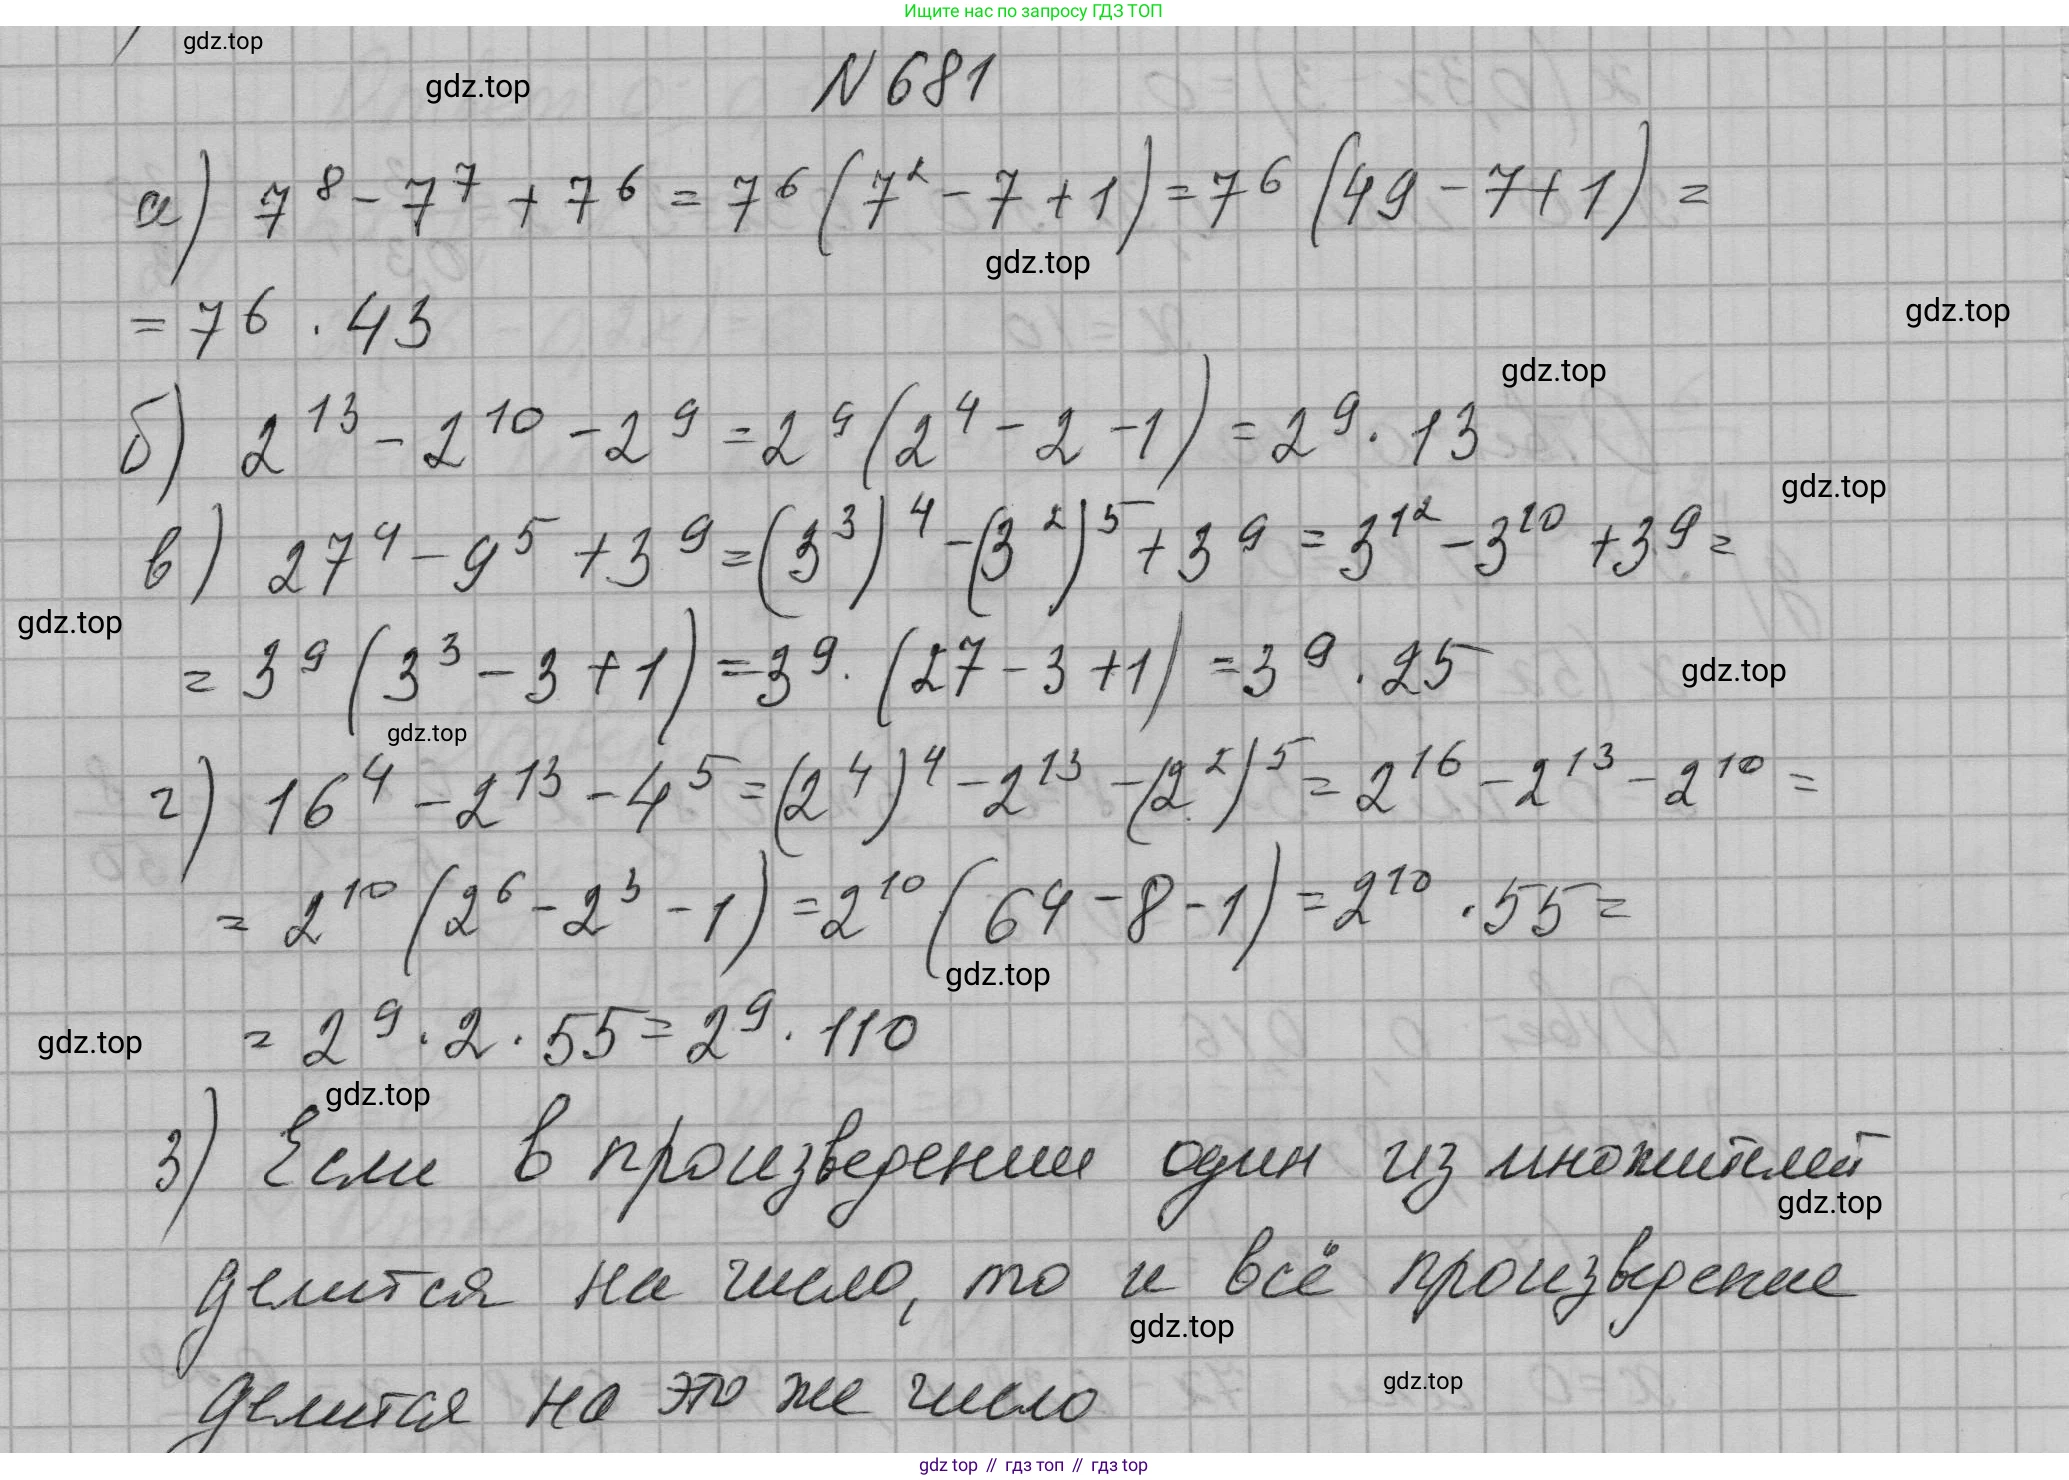 Ищите нас по запросу ГДЗ ТОП
gdz.top
gdz.top
N 681
а) 7⁸ - 7⁷ + 7⁶ = 7⁶ (7² - 7 + 1) = 7⁶ (49 - 7 + 1) =
gdz.top
= 7⁶ · 43
gdz.top
gdz.top
б) 2¹³ - 2¹⁰ - 2⁹ = 2⁹ (2⁴ - 2 - 1) = 2⁹ · 13
gdz.top
в) 27⁴ - 9⁵ + 3⁹ = (3³)⁴ - (3²)⁵ + 3⁹ = 3¹² - 3¹⁰ + 3⁹ =
gdz.top
= 3⁹ (3³ - 3 + 1) = 3⁹ · (27 - 3 + 1) = 3⁹ · 25
gdz.top
gdz.top
г) 16⁴ - 2¹³ - 4⁵ = (2⁴)⁴ - 2¹³ - (2²)⁵ = 2¹⁶ - 2¹³ - 2¹⁰ =
= 2¹⁰ (2⁶ - 2³ - 1) = 2¹⁰ (64 - 8 - 1) = 2¹⁰ · 55 =
gdz.top
= 2⁹ · 2 · 55 = 2⁹ · 110
gdz.top
gdz.top
з) Если в произведении один из множителей
gdz.top
делится на число, то и всё произведение
gdz.top
делится на это же число
gdz.top
gdz top // гдз топ // гдз top